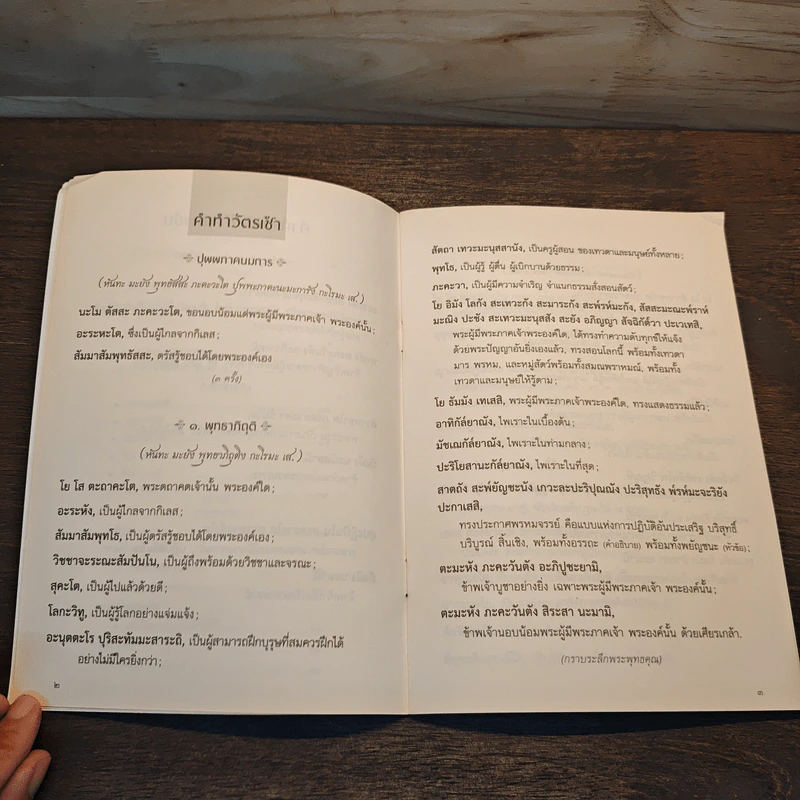 คำทำวัตรเช้า
ปุพพภาคนมการ
(หันทะ มะยัง พุทธัสสะ ภะคะวะโต ปุพพะภาคะนะมะการัง กะโรมะ เส.)
นะโม ตัสสะ ภะคะวะโต, ขอนอบน้อมแด่พระผู้มีพระภาคเจ้า พระองค์นั้น;
อะระหะโต, ซึ่งเป็นผู้ไกลจากกิเลส;
สัมมาสัมพุทธัสสะ, ตรัสรู้ชอบได้โดยพระองค์เอง
(๓ ครั้ง)
๑. พุทธาภิถุติ
(หันทะ มะยัง พุทธาภิถุติง กะโรมะ เส.)
โย โส ตะถาคะโต, พระตถาคตเจ้านั้น พระองค์ใด;
อะระหัง, เป็นผู้ไกลจากกิเลส;
สัมมาสัมพุทโธ, เป็นผู้ตรัสรู้ชอบได้โดยพระองค์เอง;
วิชชาจะระณะสัมปันโน, เป็นผู้ถึงพร้อมด้วยวิชชาและจรณะ;
สุคะโต, เป็นผู้ไปแล้วด้วยดี;
โลกะวิทู, เป็นผู้รู้โลกอย่างแจ่มแจ้ง;
อะนุตตะโร ปุริสะทัมมะสาระถิ, เป็นผู้สามารถฝึกบุรุษที่สมควรฝึกได้
อย่างไม่มีใครยิ่งกว่า;
๒
สัตถา เทวะมะนุสสานัง, เป็นครูผู้สอน ของเทวดาและมนุษย์ทั้งหลาย;
พุทโธ, เป็นผู้รู้ ผู้ตื่น ผู้เบิกบานด้วยธรรม;
ภะคะวา, เป็นผู้มีความจำเริญ จำแนกธรรมสั่งสอนสัตว์;
โย อิมัง โลกัง สะเทวะกัง สะมาระกัง สะพ๎รหมะกัง, สัสสะมะณะพ๎ราห๎
มะณิง ปะชัง สะเทวะมะนุสสัง สะยัง อภิญญา สัจฉิกัต๎วา ปะเวเทสิ,
พระผู้มีพระภาคเจ้าพระองค์ใด, ได้ทรงทำความดับทุกข์ให้แจ้ง
ด้วยพระปัญญาอันยิ่งเองแล้ว, ทรงสอนโลกนี้ พร้อมทั้งเทวดา
มาร พรหม, และหมู่สัตว์พร้อมทั้งสมณพราหมณ์, พร้อมทั้ง
เทวดาและมนุษย์ให้รู้ตาม;
โย ธัมมัง เทเสสิ, พระผู้มีพระภาคเจ้าพระองค์ใด, ทรงแสดงธรรมแล้ว;
อาทิกัล๎ยาณัง, ไพเราะในเบื้องต้น;
มัชเฌกัล๎ยาณัง, ไพเราะในท่ามกลาง;
ปะริโยสานะกัล๎ยาณัง, ไพเราะในที่สุด;
สาตถัง สะพ๎ยัญชะนัง เกวะละปะริปุณณัง ปะริสุทธัง พ๎รหมะจะริยัง
ปะกาเสสิ,
ทรงประกาศพรหมจรรย์ คือแบบแห่งการปฏิบัติอันประเสริฐ บริสุทธิ์
บริบูรณ์ สิ้นเชิง, พร้อมทั้งอรรถะ (คำอธิบาย) พร้อมทั้งพยัญชนะ (หัวข้อ);
ตะมะหัง ภะคะวันตัง อะภิปูชะยามิ,
ข้าพเจ้าบูชาอย่างยิ่ง เฉพาะพระผู้มีพระภาคเจ้า พระองค์นั้น;
ตะมะหัง ภะคะวันตัง สิระสา นะมามิ,
ข้าพเจ้านอบน้อมพระผู้มีพระภาคเจ้า พระองค์นั้น ด้วยเศียรเกล้า.
(กราบระลึกพระพุทธคุณ)
๓